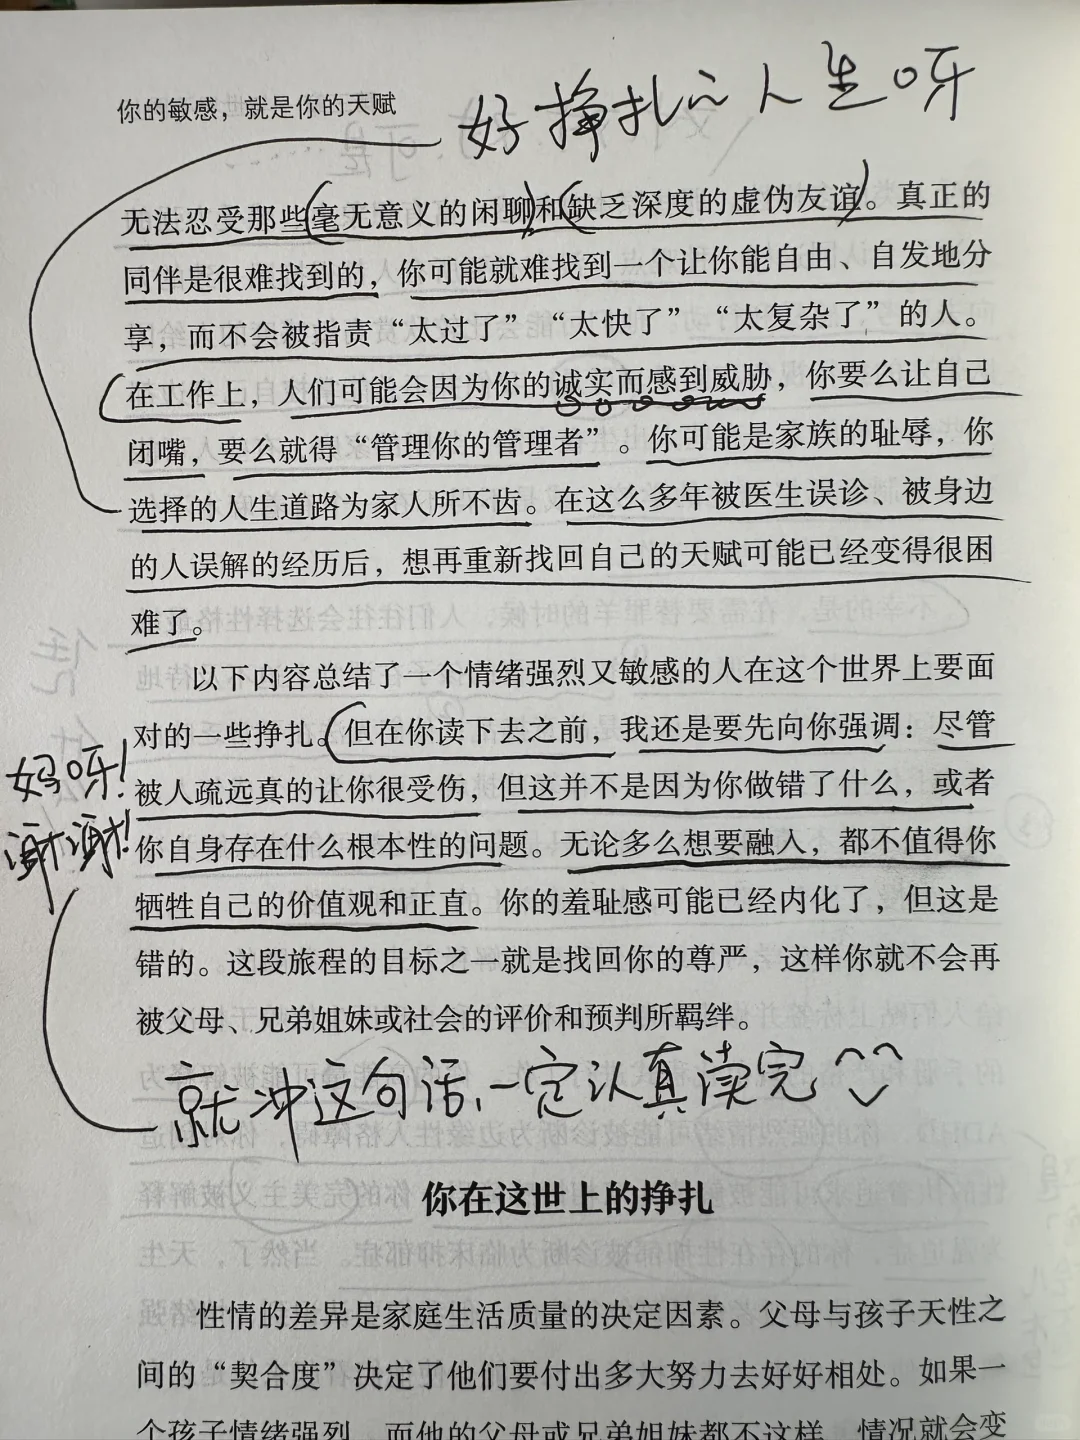 你的敏感，就是你的天赋
好挣扎的人生呀
无法忍受那些毫无意义的闲聊和缺乏深度的虚伪友谊。真正的
同伴是很难找到的，你可能就难找到一个让你能自由、自发地分
享，而不会被指责“太过了”“太快了”“太复杂了”的人。
在工作上，人们可能会因为你的诚实而感到威胁，你要么让自己
闭嘴，要么就得“管理你的管理者”。你可能是家族的耻辱，你
选择的人生道路为家人所不齿。在这么多年被医生误诊、被身边
的人误解的经历后，想再重新找回自己的天赋可能已经变得很困
难了。
以下内容总结了一个情绪强烈又敏感的人在这个世界上要面
对的一些挣扎。但在你读下去之前，我还是要先向你强调：尽管
妈呀！
被人疏远真的让你很受伤，但这并不是因为你做错了什么，或者
谢谢！
你自身存在什么根本性的问题。无论多么想要融入，都不值得你
牺牲自己的价值观和正直。你的羞耻感可能已经内化了，但这是
错的。这段旅程的目标之一就是找回你的尊严，这样你就不会再
被父母、兄弟姐妹或社会的评价和预判所羁绊。
就冲这句话、一定认真读完
你在这世上的挣扎
性情的差异是家庭生活质量的决定因素。父母与孩子天性之
间的“契合度”决定了他们要付出多大努力去好好相处。如果一
个孩子情绪强烈，而他的父母或兄弟姐妹都不这样，情况就会变